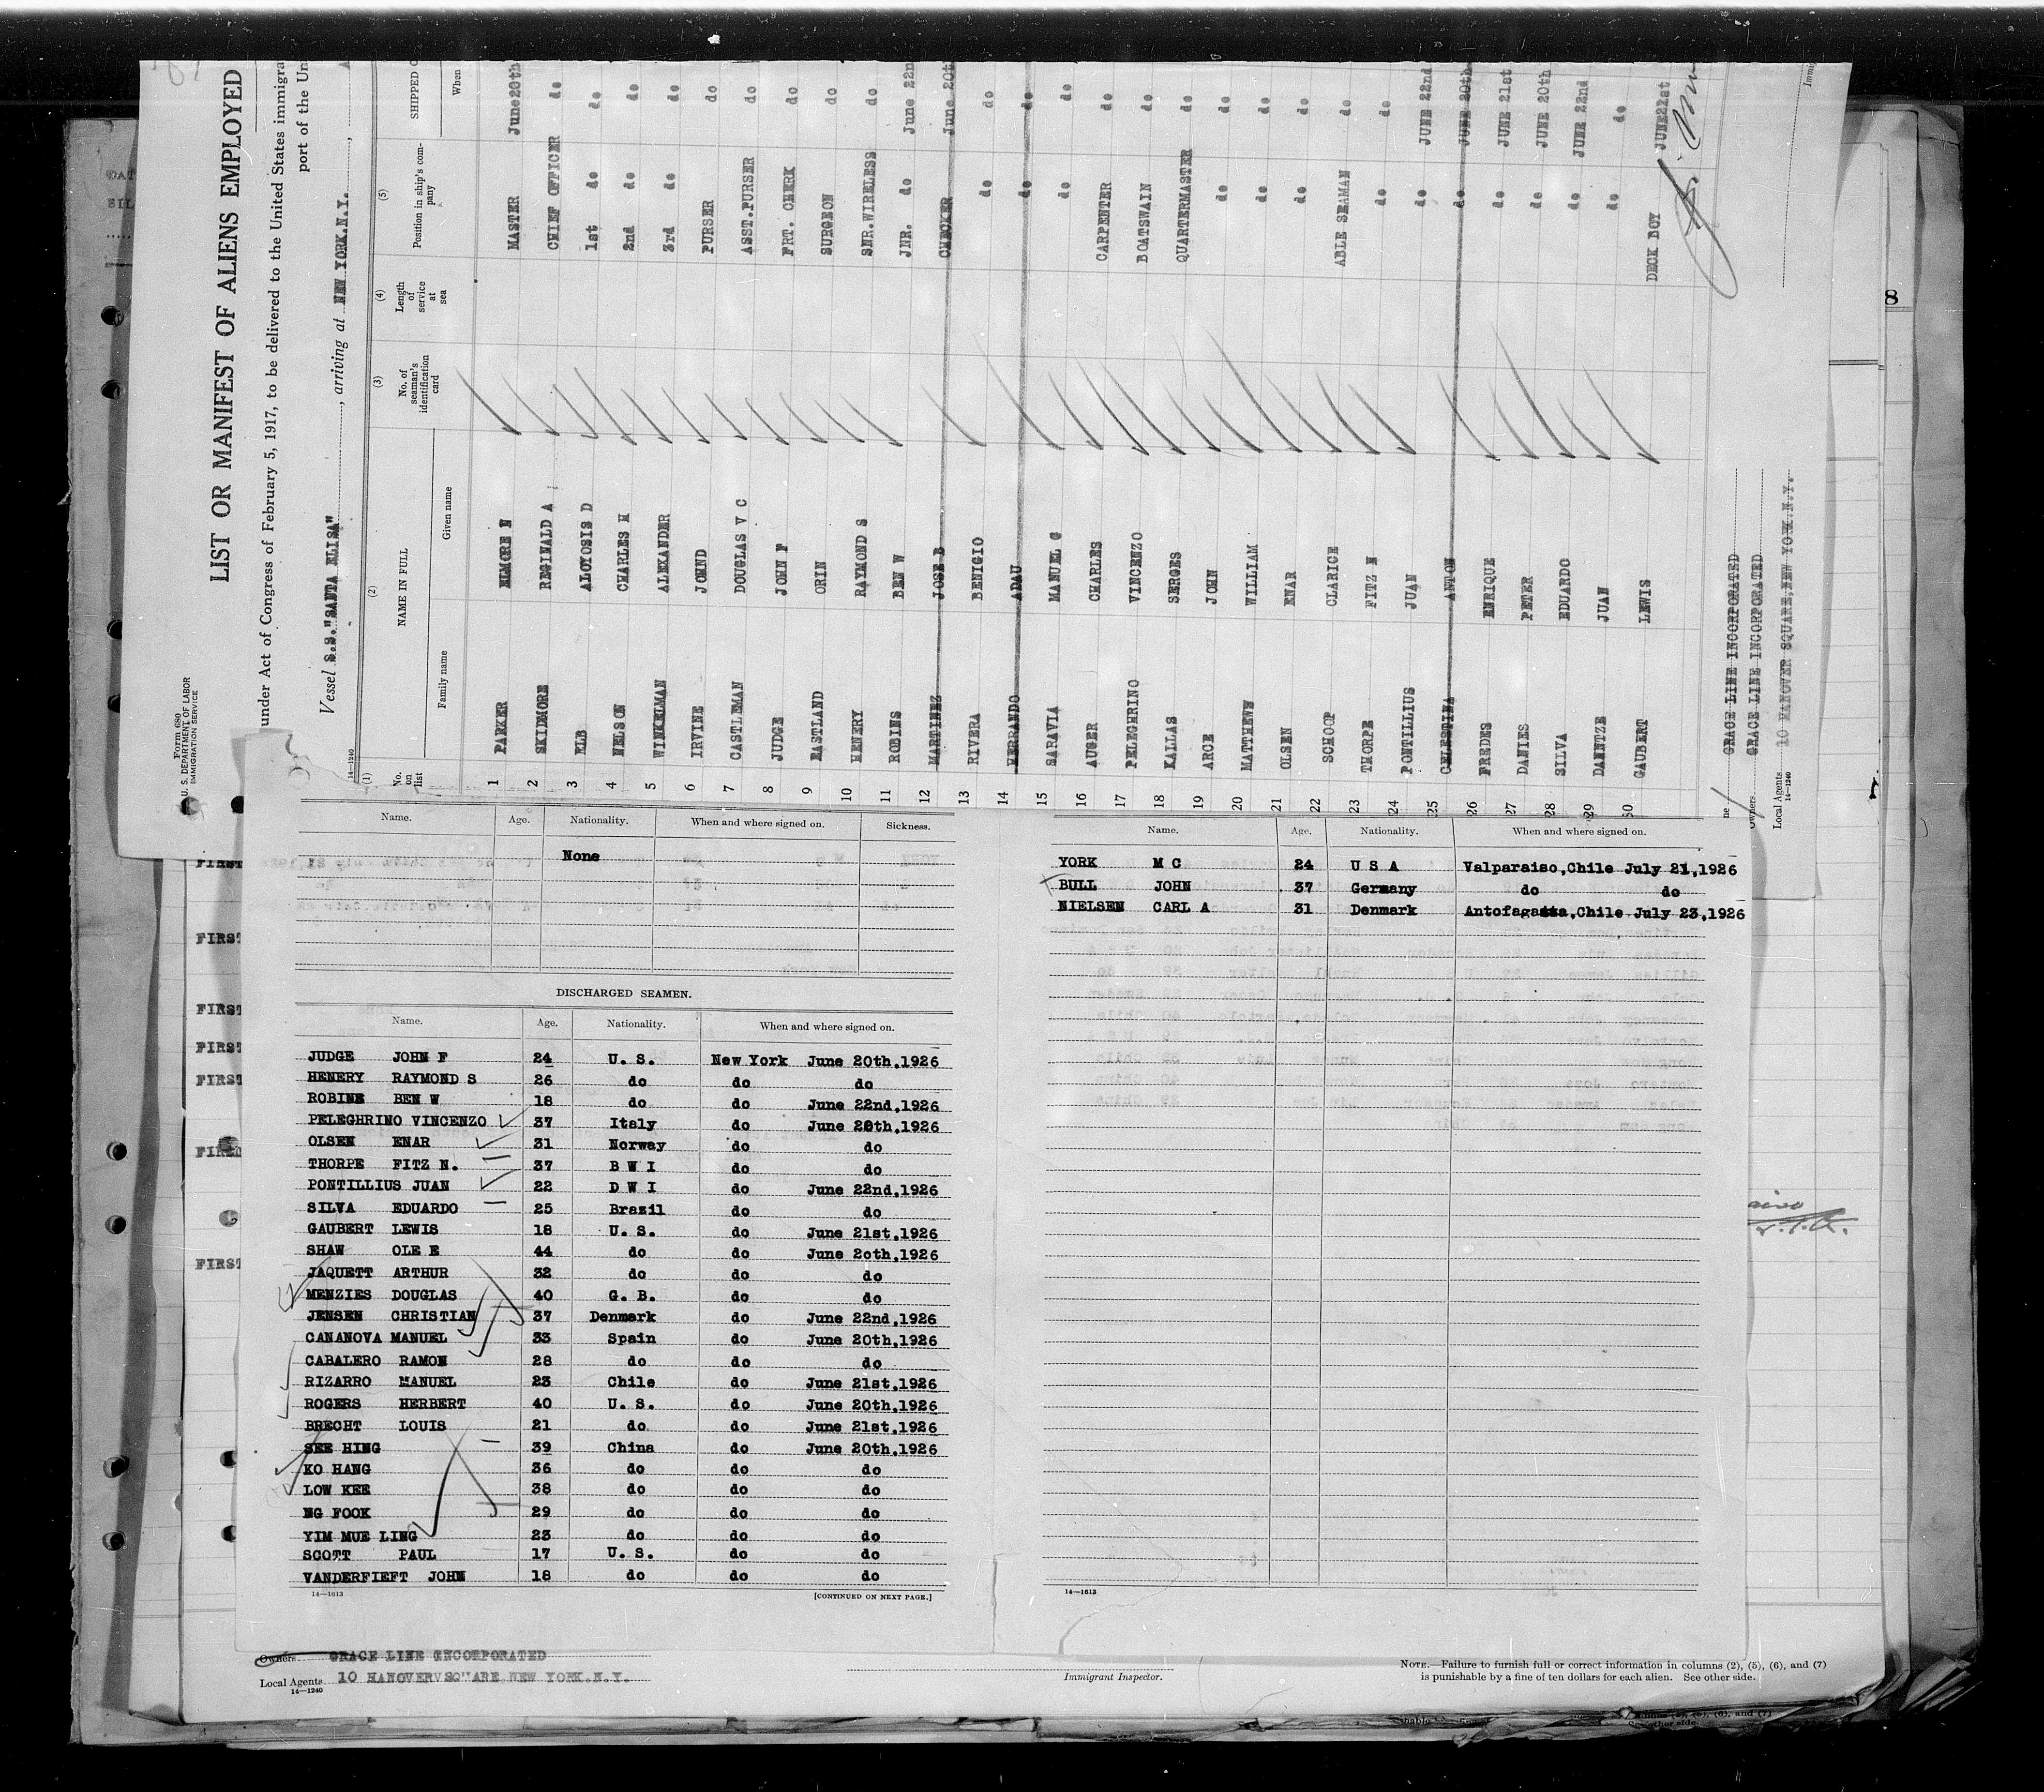 Form 680
U. S. DEPARTMENT OF LABOR
IMMIGRATION SERVICE
LIST OR MANIFEST OF ALIENS EMPLOYED
under Act of Congress of February 5, 1917, to be delivered to the United States immigra
port of the Un
Vessel S.S."SANTA ELISA", arriving at NEW YORK.N.Y.,
14—1240
(1) (2) (3) (4) (5)
No. on list NAME IN FULL No. of seaman's identification card Length of service at sea Position in ship's company SHIPPED O
Family name Given name When
1 PARKER ELMORE N MASTER June20th
2 SKIDMORE REGINALD A CHIEF OFFICER do
3 ELB ALOYOSIS D 1st do do
4 NELSON CHARLES M 2nd do do
5 WINKELMAN ALEXANDER 3rd do do
6 IRVINE JOHND PURSER do
7 CASTLEMAN DOUGLAS V C ASST.PURSER do
8 JUDGE JOHN F FRT. CHERK do
9 EASTLAND ORIN SURGEON do
10 HENERY RAYMOND S SNR.WIRELESS do
11 ROBINS BEN W JNR. do June 22n
12 MARTINEZ JOSE B CHECKER June 20t
13 RIVERA BENIGIO do do
14 HERRANDO ADAU do do
15 SARAVIA MANUEL G do do
16 AUGER CHARLES CARPENTER do
17 PELEGHRINO VINCENZO BOATSWAIN do
18 KALLAS SERGES QUARTERMASTER do
19 ARCE JOHN do do
20 MATTHEWN WILLIAM do do
21 OLSEN ENAR do do
22 SCHOOP CLARICE ABLE SEAMAN do
23 THORPE FITZ N do do
24 PONTILLIUS JUAN do JUNE 22nd
25 CELESTINA ANTON do JUNE 20th
26 FREDES ENRIQUE do JUNE 21st
27 DANIES PETER do JUNE 20th
28 SILVA EDUARDO do JUNE 22nd
29 DANNTZE JUAN do do
30 GAUBERT LEWIS DECK BOY JUNE21st
GRACE LINE INCORPORATED
Owners GRACE LINE INCORPORATED
Local Agents 10 HANOVER SQUARE,NEW YORK.N.Y.
14—1240
Name. Age. Nationality. When and where signed on. Sickness.
None
DISCHARGED SEAMEN.
Name. Age. Nationality. When and where signed on.
JUDGE JOHN F 24 U. S. New York June 20th,1926
HENERY RAYMOND S 26 do do do
ROBINS BEN W 18 do do June 22nd,1926
PELEGHRINO VINCENZO 37 Italy do June 20th,1926
OLSEN ENAR 31 Norway do do
THORPE FITZ N. 37 B W I do do
PONTILLIUS JUAN 22 D W I do June 22nd,1926
SILVA EDUARDO 25 Brazil do do
GAUBERT LEWIS 18 U. S. do June 21st,1926
SHAW OLE E 44 do do June 2oth,1926
JAQUETT ARTHUR 32 do do do
MENZIES DOUGLAS 40 G. B. do do
JENSEN CHRISTIAN 37 Denmark do June 22nd,1926
CANANOVA MANUEL 33 Spain do June 20th,1926
CABALERO RAMON 28 do do do
RIZARRO MANUEL 23 Chile do June 21st,1926
ROGERS HERBERT 40 U. S. do June 20th,1926
BRECHT LOUIS 21 do do June 21st,1926
SEE HING 39 China do June 20th,1926
KO HANG 36 do do do
LOW KEE 38 do do do
NG FOOK 29 do do do
YIM MUE LING 23 do do do
SCOTT PAUL 17 U. S. do do
VANDERFIEFT JOHN 18 do do do
14—1613 [CONTINUED ON NEXT PAGE.]
Name. Age. Nationality. When and where signed on.
YORK M C 24 U S A Valparaiso,Chile July 21,1926
BULL JOHN 37 Germany do do
NIELSEN CARL A 31 Denmark Antofagasta,Chile July 23,1926
14—1613
FIRST
FIRST
FIRST
FIRST
FIRST
FIRST
8
Owners GRACE LINE INCORPORATED
Local Agents 10 HANOVER SQUARE NEW YORK.N.Y.
14—1240
Immigrant Inspector.
NOTE.—Failure to furnish full or correct information in columns (2), (5), (6), and (7)
is punishable by a fine of ten dollars for each alien. See other side.
See other side.